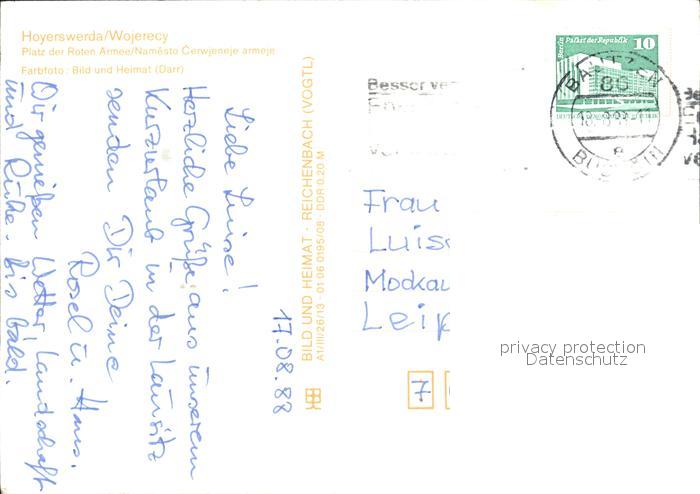 Hoyerswerda/Wojerecy
Platz der Roten Armee/Naměsto Čerwjeneje armeje
Farbfoto: Bild und Heimat (Darr)
17.08.88
Liebe Luise!
Herzliche Grüße aus unserem
Kurzurlaub in der Lausitz
senden Dir Deine
Rosel u. Hans.
Wir genießen Wetter, Landschaft
und Ruhe. Bis bald.
BILD UND HEIMAT · REICHENBACH (VOGTL)
A1/III/26/13 · 01 06 0195/08 · DDR 0,20 M
Besser
Berlin Palast der Republik 10
BAUTZEN
86
8
e
BUDYŠIN
Frau
Luis
Mockau
Leip
7
privacy protection
Datenschutz